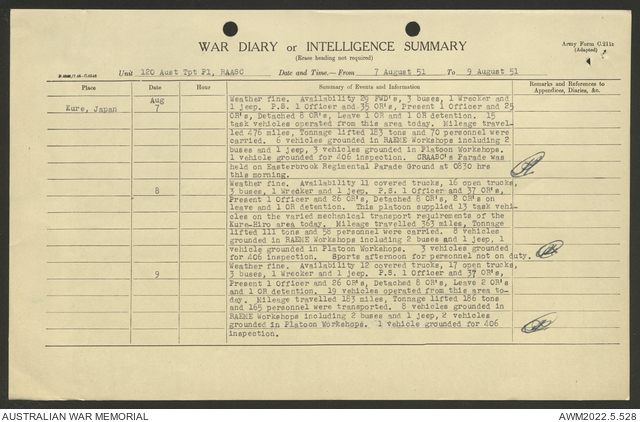 WAR DIARY or INTELLIGENCE SUMMARY
(Erase heading not required)
Army Form C.2118
(Adapted)
Unit 120 Aust Tpt Pl, RAASC Date and Time.—From 7 August 51 To 9 August 51
Place Date Hour Summary of Events and Information Remarks and References to Appendices, Diaries, &c.
Kure, Japan Aug 7 Weather fine. Availability 29 FWD's, 3 buses, 1 Wrecker and
1 jeep. P.S. 1 Officer and 35 OR's, Present 1 Officer and 25
OR's, Detached 8 OR's, Leave 1 OR and 1 OR detention. 15
task vehicles operated from this area today. Mileage travel-
led 476 miles, Tonnage lifted 183 tons and 70 personnel were
carried. 6 vehicles grounded in RAEME Workshops including 2
buses and 1 jeep, 3 vehicles grounded in Platoon Workshops.
1 vehicle grounded for 406 inspection. CRAASC's Parade was
held on Easterbrook Regimental Parade Ground at 0830 hrs
this morning.
8 Weather fine. Availability 11 covered trucks, 16 open trucks,
3 buses, 1 Wrecker and 1 jeep. P.S. 1 Officer and 37 OR's,
Present 1 Officer and 26 OR's, Detached 8 OR's, 2 OR's on
leave and 1 OR detention. This platoon supplied 13 task vehi-
cles on the varied mechanical transport requirements of the
Kure-Hiro area today. Mileage travelled 363 miles, Tonnage
lifted 111 tons and 58 personnel were carried. 8 vehicles
grounded in RAEME Workshops including 2 buses and 1 jeep, 1
vehicle grounded in Platoon Workshops. 3 vehicles grounded
for 406 inspection. Sports afternoon for personnel not on duty.
9 Weather fine. Availability 12 covered trucks, 17 open trucks,
3 buses, 1 Wrecker and 1 jeep. P.S. 1 Officer and 37 OR's,
Present 1 Officer and 26 OR's, Detached 8 OR's, Leave 2 OR's
and 1 OR detention. 19 vehicles operated from this area to-
day. Mileage travelled 183 miles, Tonnage lifted 186 tons
and 165 personnel were transported. 8 vehicles grounded in
RAEME Workshops including 2 buses and 1 jeep, 2 vehicles
grounded in Platoon Workshops. 1 vehicle grounded for 406
inspection.
AUSTRALIAN WAR MEMORIAL AWM2022.5.528